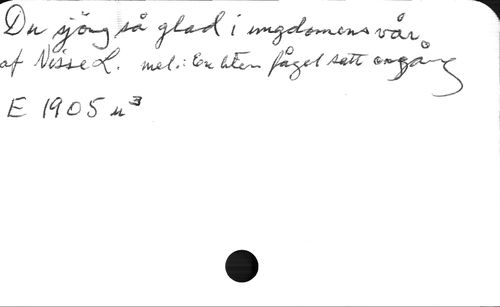 Du sjöng så glad i ungdomens vår.
af Nisse L. mel.: En liten fågel satt en gång
E 1905 u³